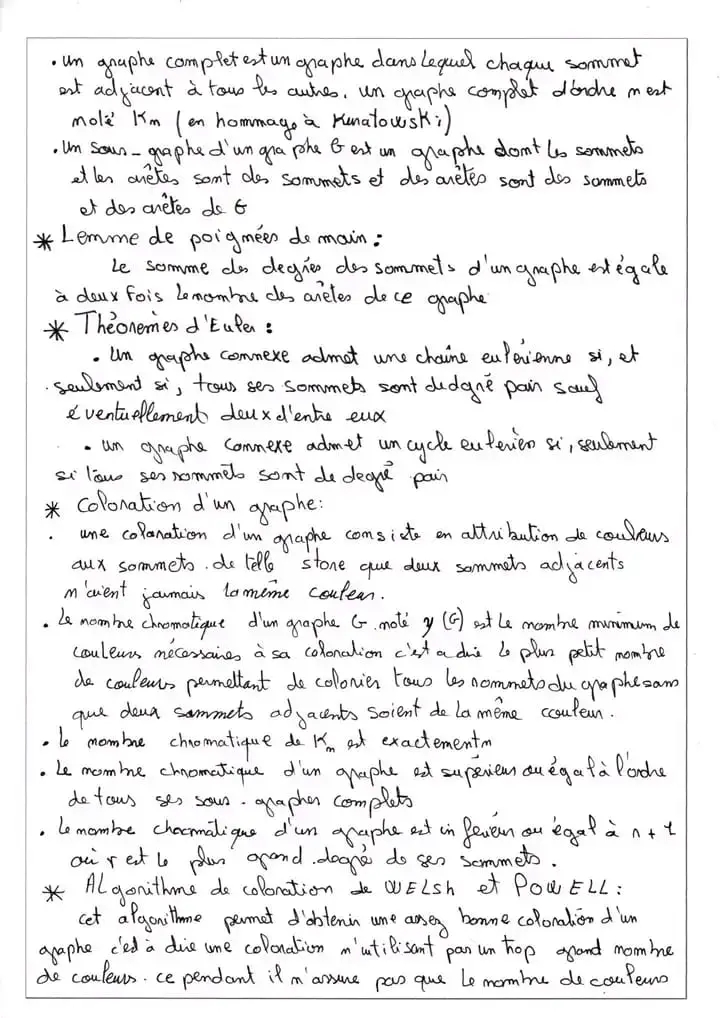 . un graphe complet est un graphe dans lequel chaque sommet
est adjacent à tous les autres. un graphe complet d'ordre n est
molé Kn (en hommage à Kuratowski)
. Un sous-graphe d'un graphe G est un graphe dont les sommets
et les arêtes sont des sommets et des arêtes sont des sommets
et des arêtes de G
* Lemme de poignées de main :
Le somme des degrés des sommets d'un graphe est égale
à deux fois le nombre des arêtes de ce graphe
* Théoremes d'Euler :
. Un graphe connexe admet une chaîne eulérienne si, et
seulement si, tous ses sommets sont de degré pair sauf
éventuellement deux d'entre eux
. un graphe connexe admet un cycle eulerien si, seulement
si tous ses sommets sont de degré pair
* Coloration d'un graphe:
. une coloration d'un graphe consiste en attribution de couleurs
aux sommets. de telle store que deux sommets adjacents
n'aient jamais la même couleur.
. Le nombre chromatique d'un graphe G. noté y (G) est Le nombre minimum de
couleurs nécessaires à sa coloration c'est a dire le plus petit nombre
de couleurs permettant de colorier tous les sommets du graphe sans
que deux sommets adjacents soient de la même ccouleur.
. le nombre chromatique de Kn est exactement n
. Le nombre chromatique d'un graphe est supérieur ou égal à l'ordre
de tous ses sous-graphes complets
. Le nombre chromatique d'un graphe est inférieur ou égal à r + 1
où r est le plus grand degré de ses sommets.
* ALgorithme de coloration de WELSh et POWELL :
cet algorithme permet d'obtenir une assez bonne coloration d'un
graphe c'est à dire une coloration n'utilisant pas un trop grand nombre
de couleurs. ce pendant il n'assure pas que le nombre de couleurs